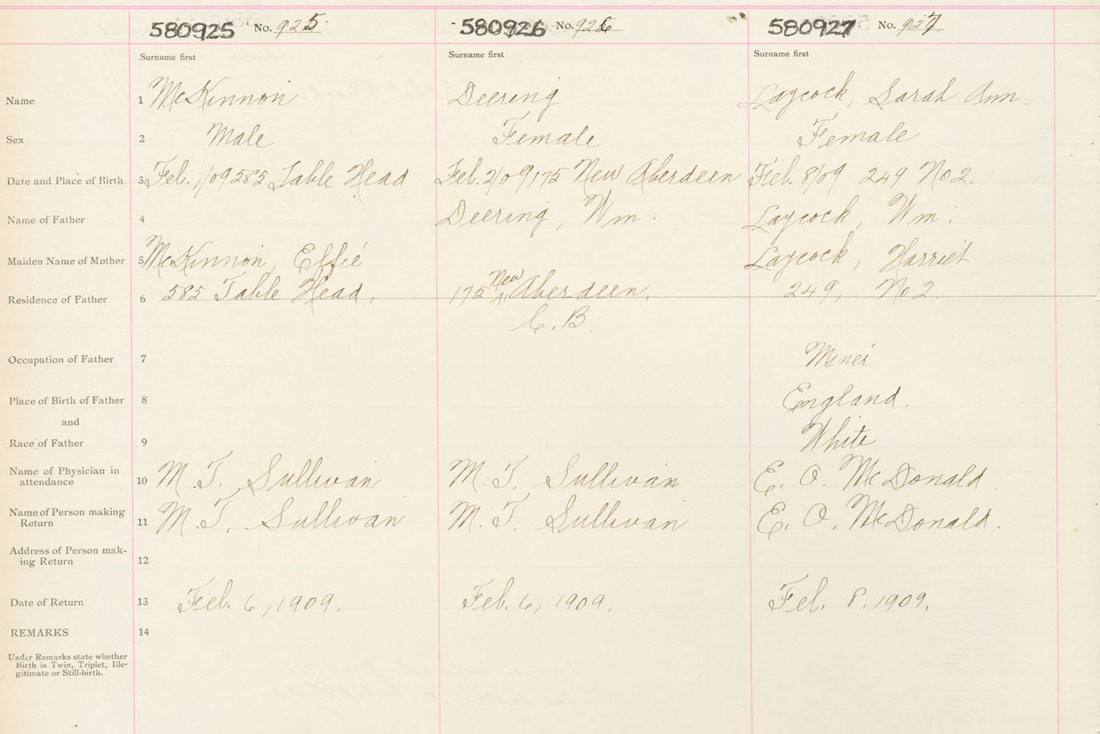 580925 No. 925 580926 No. 926 580927 No. 927
Surname first Surname first Surname first
Name 1 McKinnon Deering Laycock, Sarah Ann.
Sex 2 Male Female Female
Date and Place of Birth 3 Feb. 1/09 585 Table Head Feb. 2/09 175 New Aberdeen Feb. 8/09 249 No 2.
Name of Father 4 Deering, Wm. Laycock, Wm.
Maiden Name of Mother 5 McKinnon, Effie Laycock, Harriet
Residence of Father 6 585 Table Head, 175 New Aberdeen, 249, No 2
C. B.
Occupation of Father 7 Miner
Place of Birth of Father 8 England.
and
Race of Father 9 White
Name of Physician in
attendance 10 M. T. Sullivan M. T. Sullivan E. O. McDonald
Name of Person making
Return 11 M. T. Sullivan M. T. Sullivan E. O. McDonald.
Address of Person mak-
ing Return 12
Date of Return 13 Feb. 6, 1909. Feb. 6, 1909. Feb. 8. 1909.
REMARKS 14
Under Remarks state whether
Birth is Twin, Triplet, Ille-
gitimate or Still-birth.